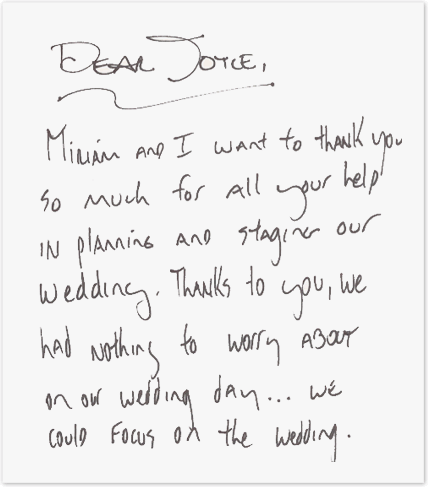 Dear Joyce,
Miriam and I want to thank you
so much for all your help
in planning and staging our
wedding. Thanks to you, we
had nothing to worry about
on our wedding day... we
could focus on the wedding.